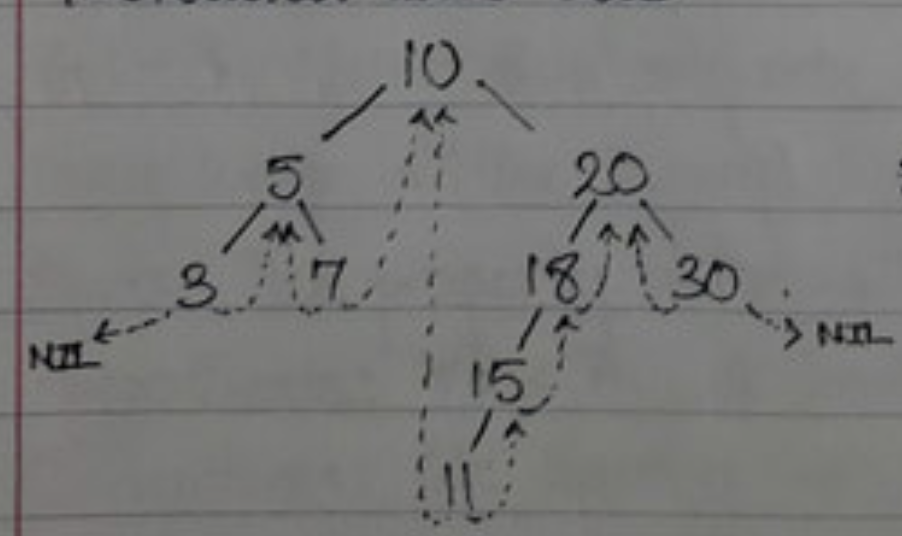 10
5 20
3 7 18 30
NIL NIL
15
11